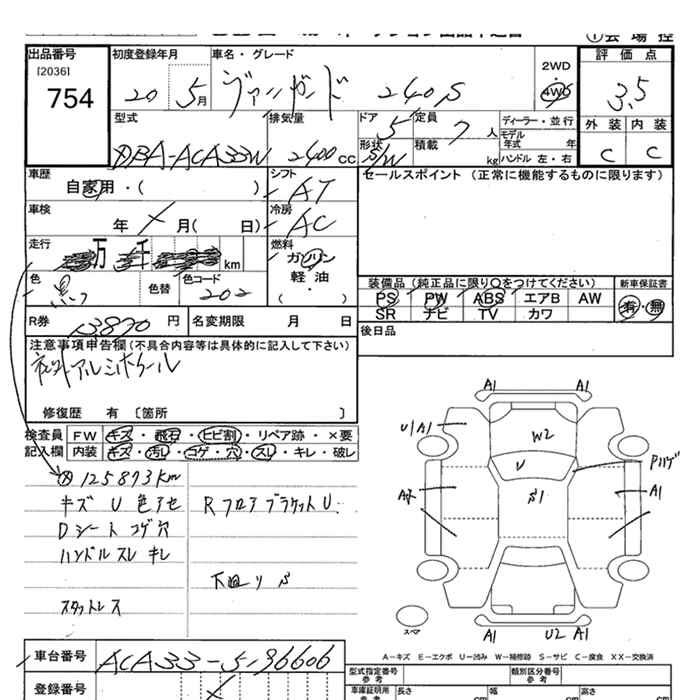 出品番号
[2036]
754
初度登録年月
20 5月
車名・グレード
ヴァンガード 240S
2WD
4WD
評価点
3.5
外装 内装
C C
型式
DBA-ACA33W
排気量
2400cc
ドア
5
定員
7人
形状
S/W
積載
kg
ディーラー・並行
モデル年式 年
ハンドル 左・右
車歴
自家用・( )
シフト
AT
セールスポイント (正常に機能するものに限ります)
車検
年 月( 日)
冷房
AC
走行
万 千 km
燃料
ガソリン
軽油
( )
色
黒
色替
色コード
202
装備品 (純正品に限り○をつけてください)
新車保証書
PS PW ABS エアB AW
SR ナビ TV カワ
有・無
R券
13870円
名変期限 月 日
後日品
注意事項申告欄(不具合内容等は具体的に記入して下さい)
社外アルミホイール
修復歴 有 〔箇所 〕
検査員記入欄
FW キズ・飛石・ヒビ割・リペア跡・×要
内装 キズ・汚レ・コゲ・穴・スレ・キレ・破レ
125873km
キズ U 色アセ
Dシート コゲ穴
ハンドル スレ キレ
スタットレス
Rフロアブラケット U.
下廻り S
A1 A1
U/A1
W2
U
S1
A1
スペア
A1 U2 A1
A-キズ E-エクボ U-凹み W-補修跡 S-サビ C-腐食 XX-交換済
車台番号
ACA33-5196606
登録番号
型式指定番号
参考
類別区分番号
参考
車庫証明用
参考
長さ cm
幅 cm
高さ cm